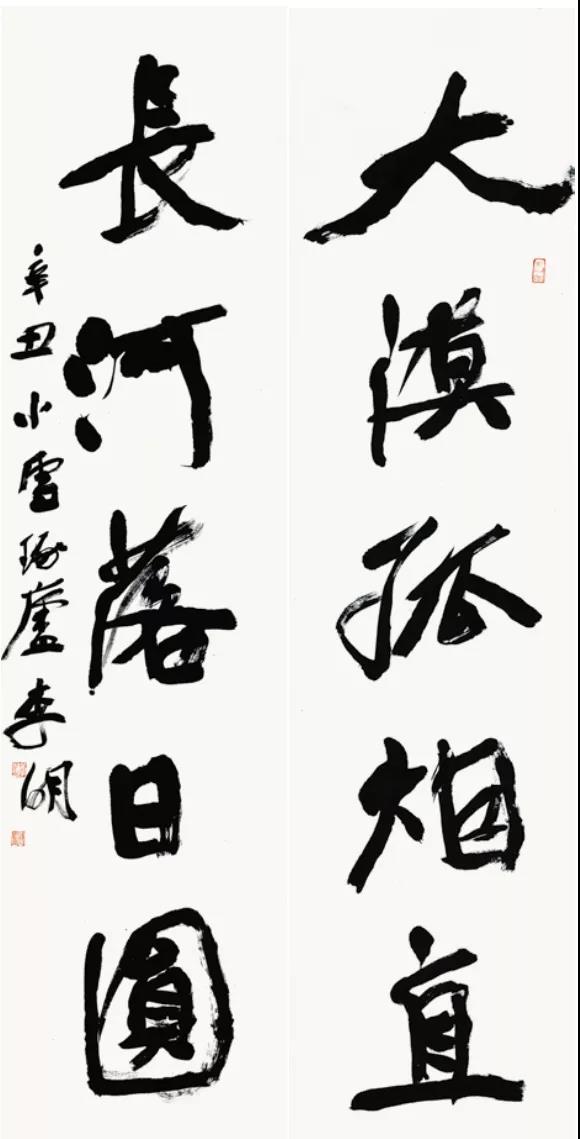 大漠孤烟直
長河落日圓
辛丑小雪琢廬李明